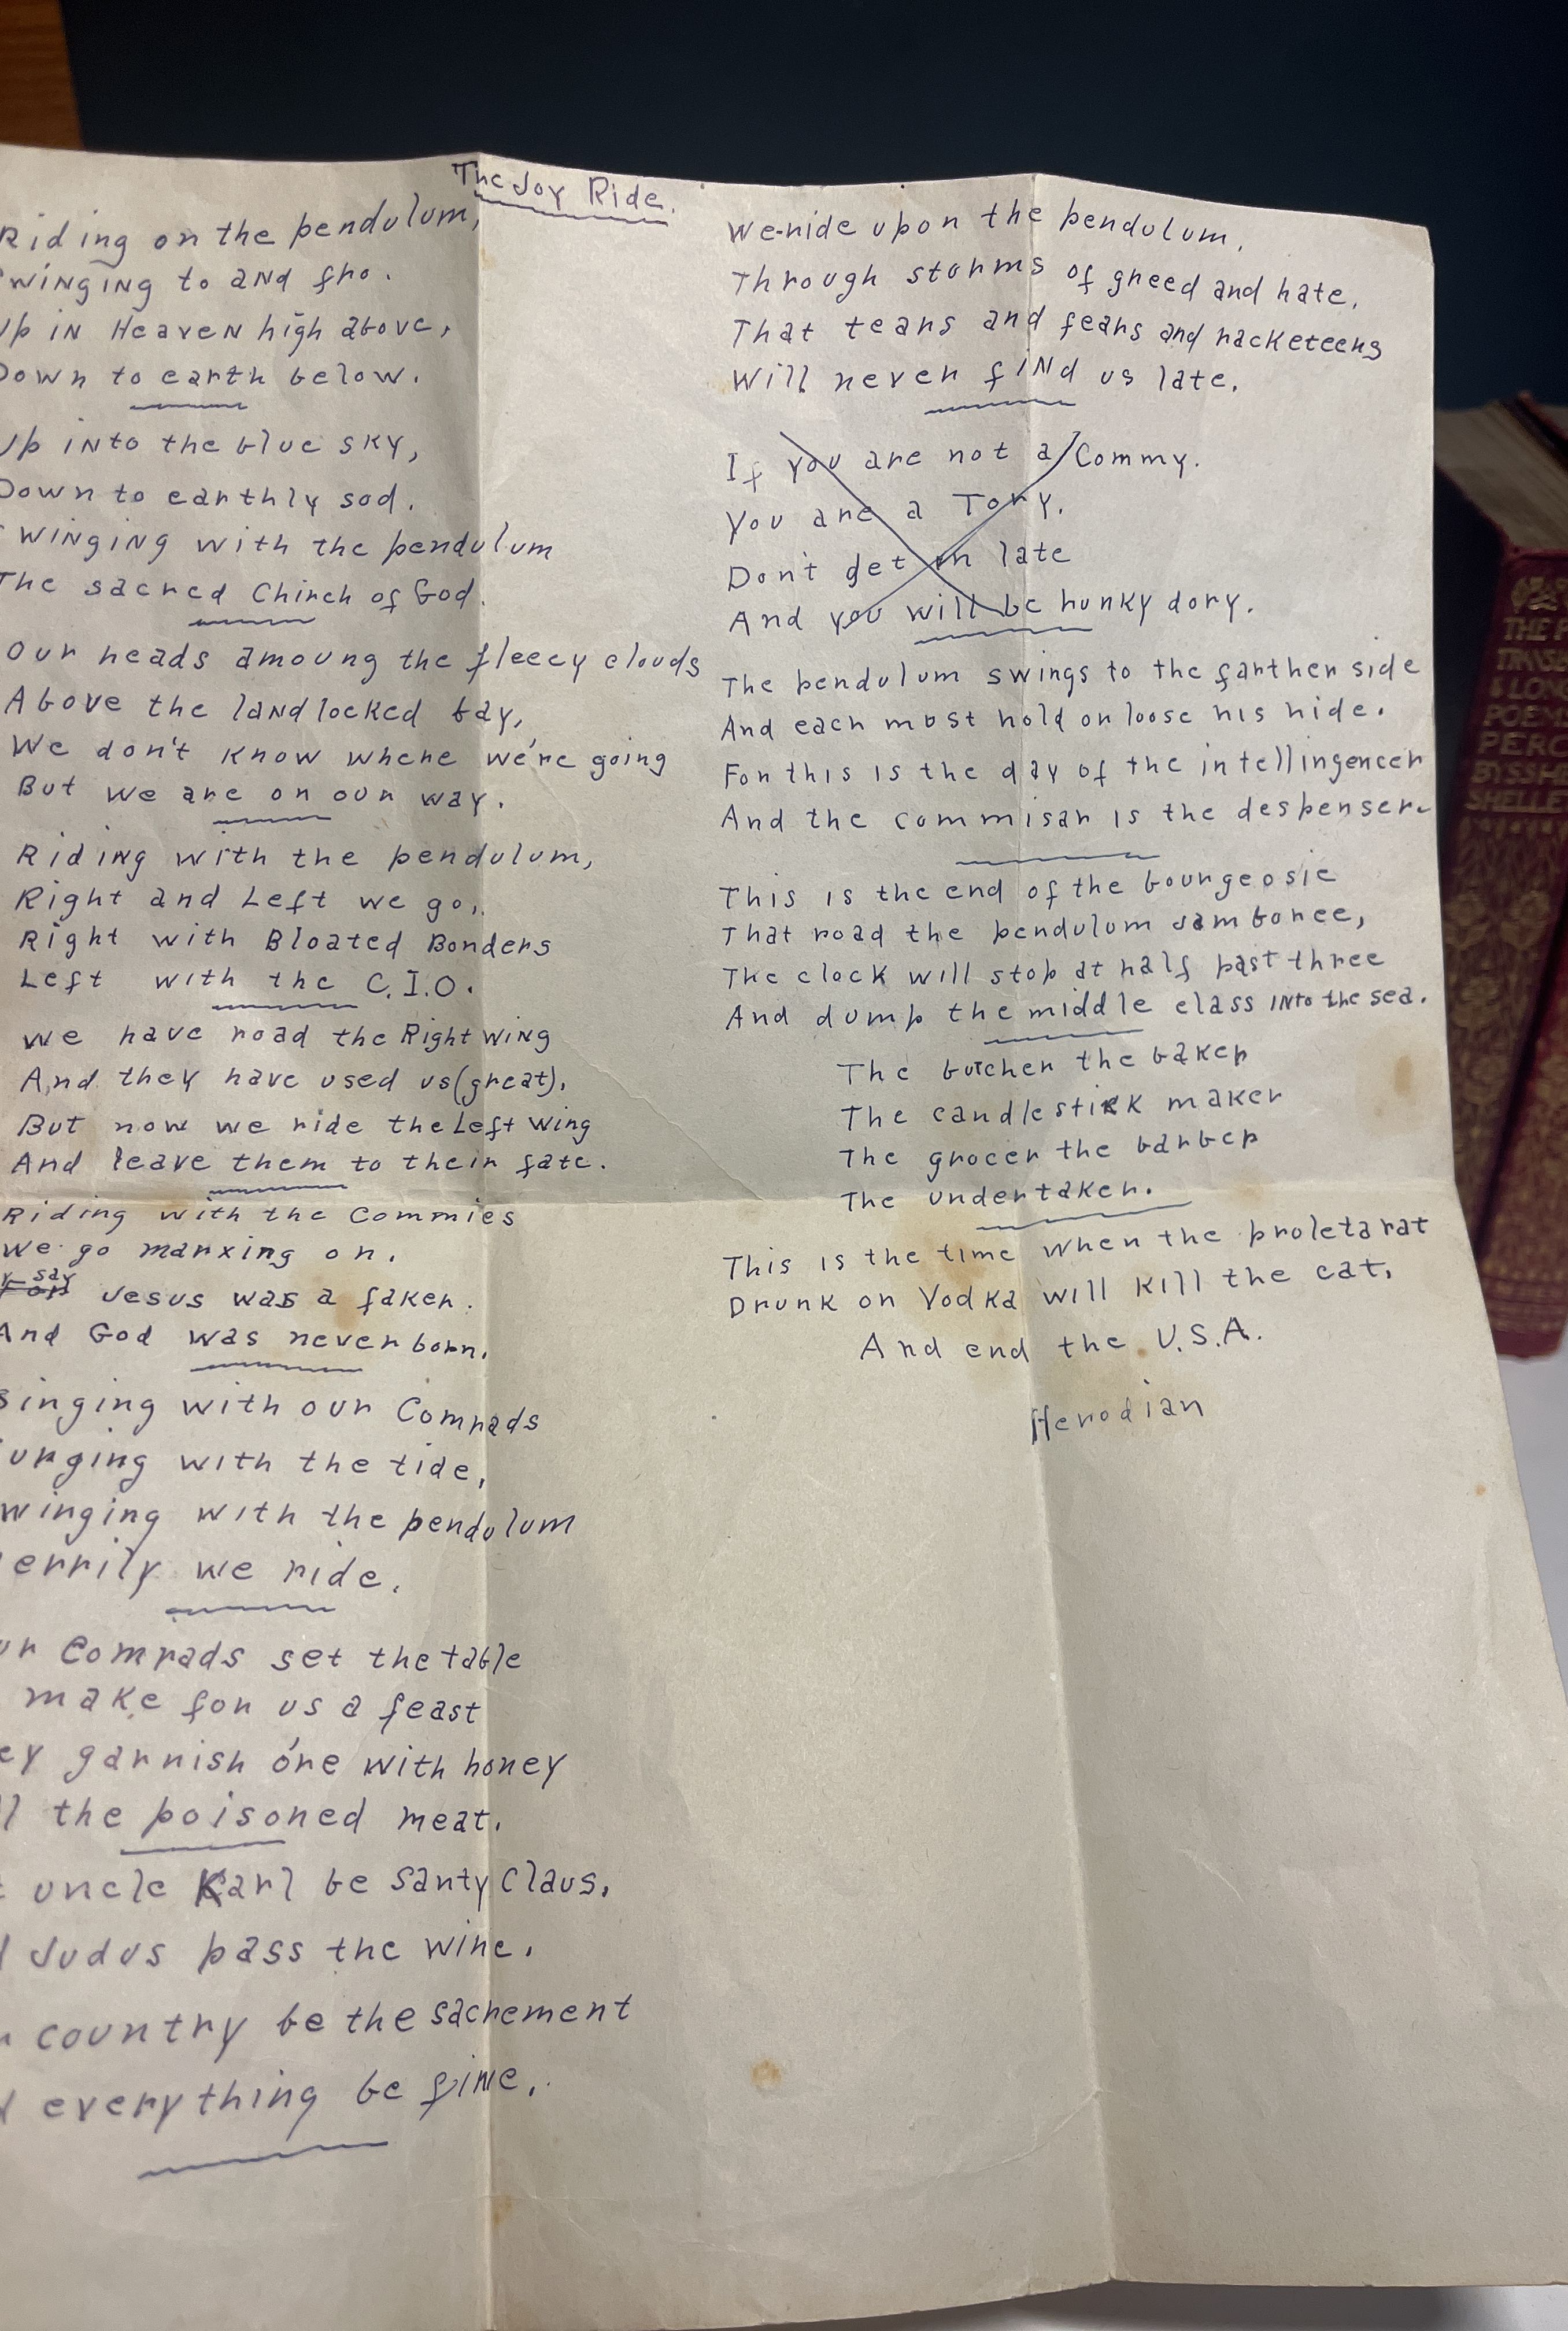 The Joy Ride.
Riding on the pendulum,
Swinging to and fro.
Up in Heaven high above,
Down to earth below.
Up into the blue sky,
Down to earthly sod.
Swinging with the pendulum
The sacred Chirch of God.
Our heads amoung the fleecy clouds
Above the landlocked bay,
We don't know where we're going
But we are on our way.
Riding with the pendulum,
Right and Left we go,
Right with Bloated Bonders
Left with the C.I.O.
We have road the Right wing
And they have used us (great).
But now we ride the Left wing
And leave them to their fate.
Riding with the Commies
We go marxing on.
say Jesus was a faker.
And God was never born.
Singing with our Comrads
urging with the tide,
winging with the pendulum
errily we ride.
ur Comrads set the table
make for us a feast
ey garnish one with honey
ll the poisoned meat.
uncle Karl be Santy Claus,
Judus pass the wine.
country be the sacrement
everything be fine.
We ride upon the pendulum.
Through storms of greed and hate,
That tears and fears and racketeers
Will never find us late.
If you are not a Commy.
You are a Tory.
Don't get in late
And you will be hunky dory.
The pendulum swings to the farther side
And each must hold or loose his hide.
For this is the day of the intellingencer
And the commisar is the despenser.
This is the end of the bourgeosie
That road the pendulum Jamboree,
The clock will stop at half past three
And dump the middle class into the sea.
The butcher the baker
The candlestick maker
The grocer the barber
The undertaker.
This is the time when the proletarat
Drunk on Vodka will kill the cat,
And end the U.S.A.
Herodian
THE P
POEM
PERC
BYSSHE
SHELLE